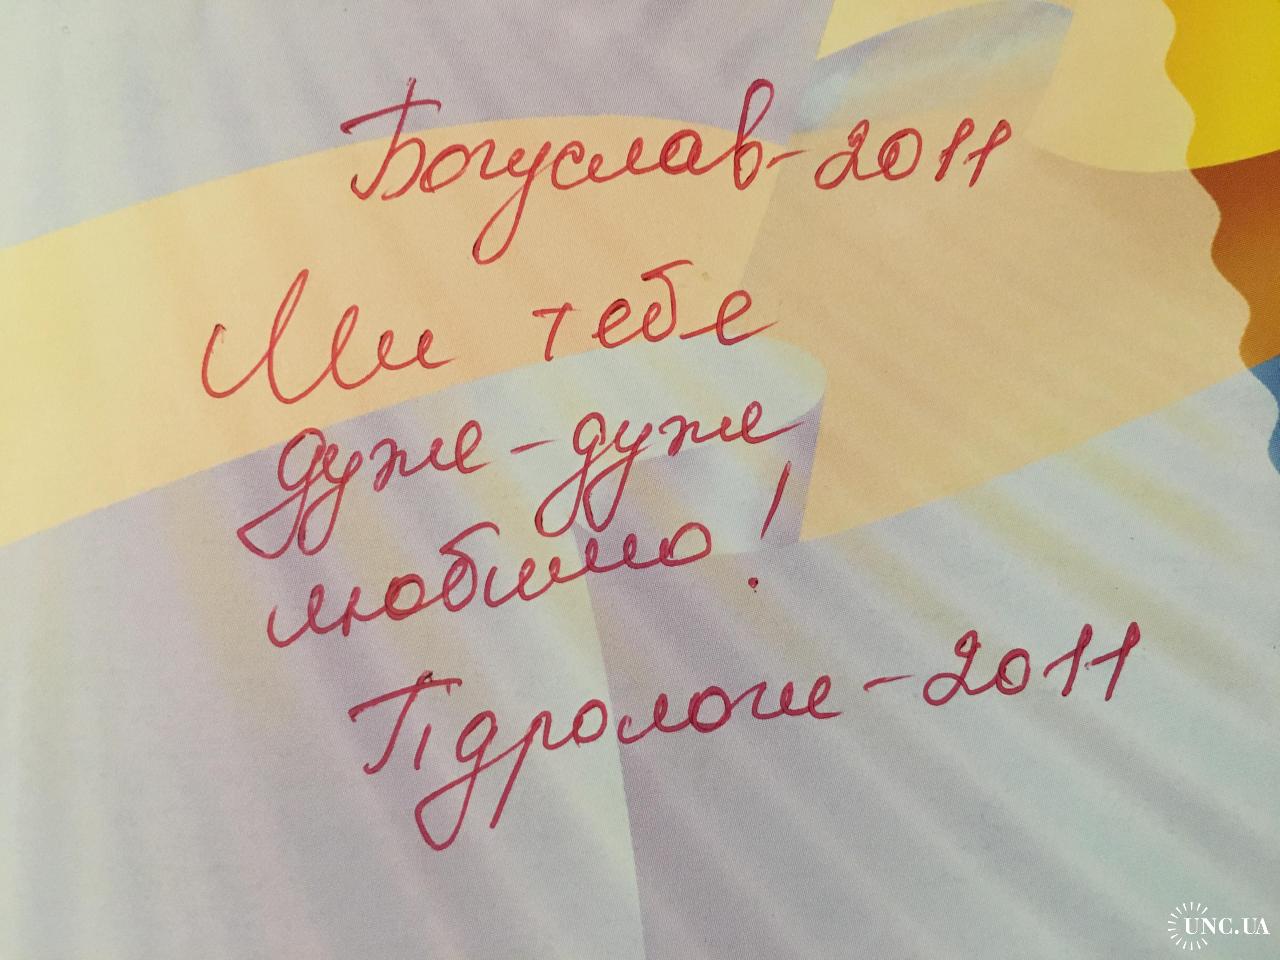 Богуслав-2011
Ми тебе
дуже-дуже
любимо!
Гідрологи-2011
UNC.UA